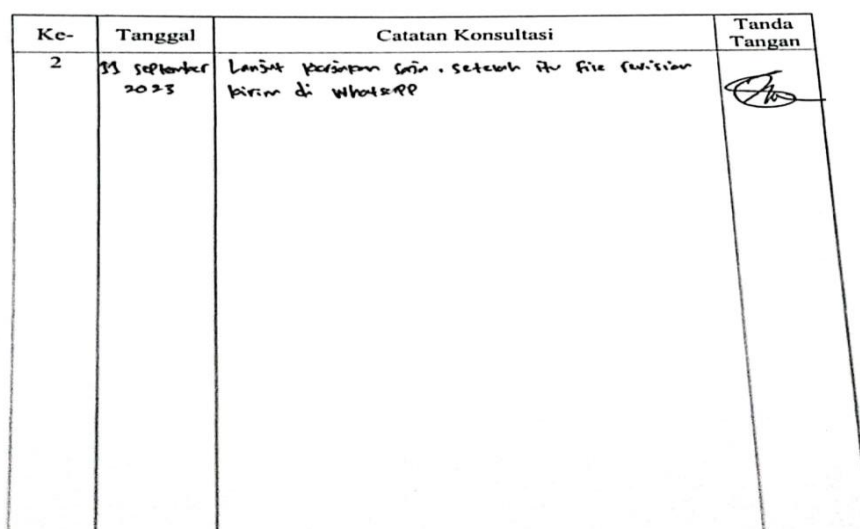 Ke- Tanggal Catatan Konsultasi Tanda
Tangan
2 11 September Lanjut kerjakan saja. setelah itu file revisian
2023 kirim di WhatsAPP